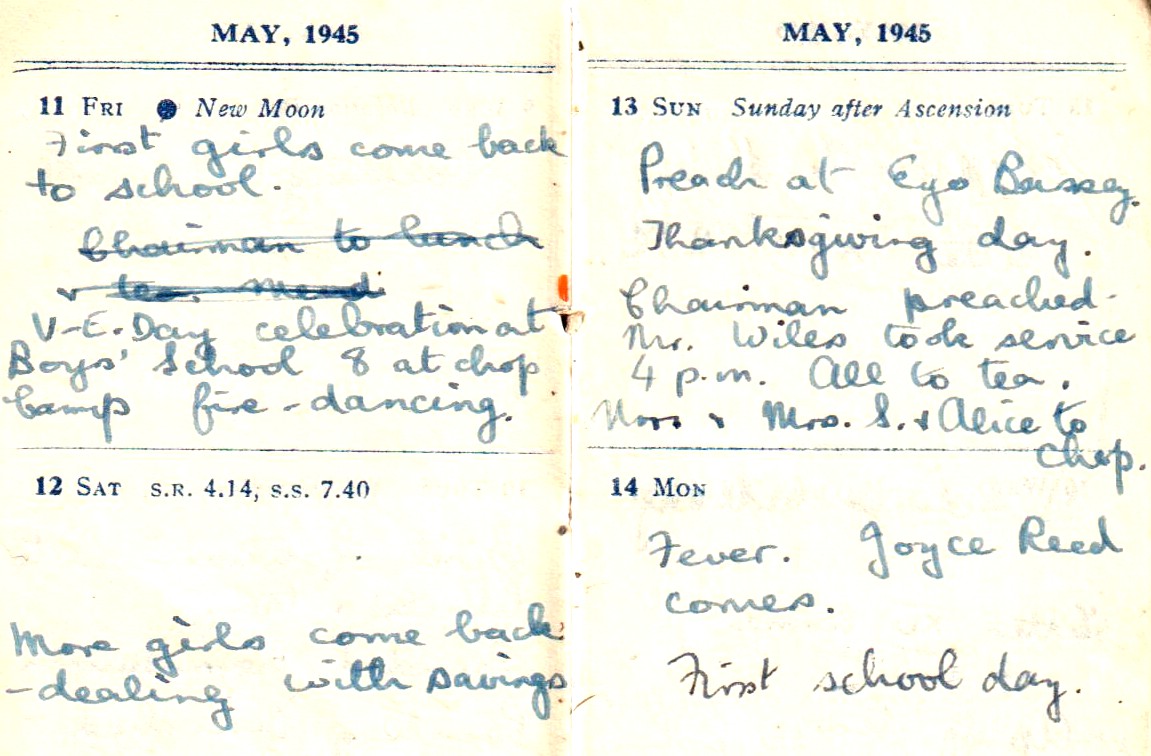 MAY, 1945
11 FRI New Moon
First girls come back
to school.
Chairman to lunch
V-E. Day celebration at
Boys' School 8 at chop
Camp fire-dancing.
12 SAT S.R. 4.14; S.S. 7.40
More girls come back
- dealing with savings
MAY, 1945
13 SUN Sunday after Ascension
Preach at Eyo Bassey.
Thanksgiving day.
Chairman preached.
Mr. Wiles took service
4 p.m. All to tea.
& Mrs. S. & Alice to
chop.
14 MON
Fever. Joyce Reed
comes.
First school day.